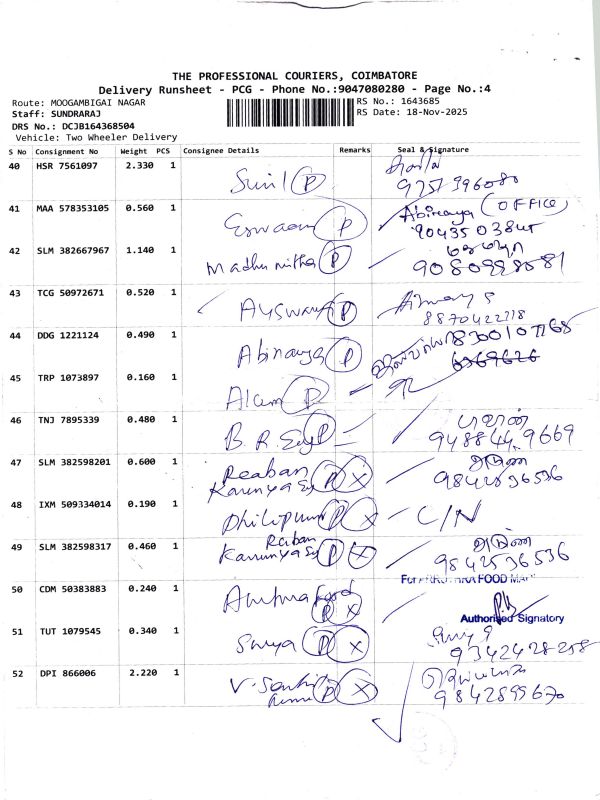 THE PROFESSIONAL COURIERS, COIMBATORE
Delivery Runsheet - PCG - Phone No.:9047080280 - Page No.:4
Route: MOOGAMBIGAI NAGAR RS No.: 1643685
Staff: SUNDRARAJ RS Date: 18-Nov-2025
DRS No.: DCJB164368504
Vehicle: Two Wheeler Delivery
S No Consignment No Weight PCS Consignee Details Remarks Seal & Signature
40 HSR 7561097 2.330 1 Sunil P
41 MAA 578353105 0.560 1 Eswaari P Abinaya (OFFICE)
42 SLM 382667967 1.140 1 Madhumitha P
43 TCG 50972671 0.520 1 Ayswarya P
8870422718
44 DDG 1221124 0.490 1 Abinaya P
45 TRP 1073897 0.160 1 P
46 TNJ 7895339 0.480 1 B.R. P
9488449669
47 SLM 382598201 0.600 1 Reaban Karunya P X
9842536536
48 IXM 509334014 0.190 1 P X C/N
49 SLM 382598317 0.460 1 Raban Karunya P X
9842536536
50 CDM 50383883 0.240 1 Food P X FOOD
Authorised Signatory
51 TUT 1079545 0.340 1 Surya P X
9342428258
52 DPI 866006 2.220 1 P X
9842895670